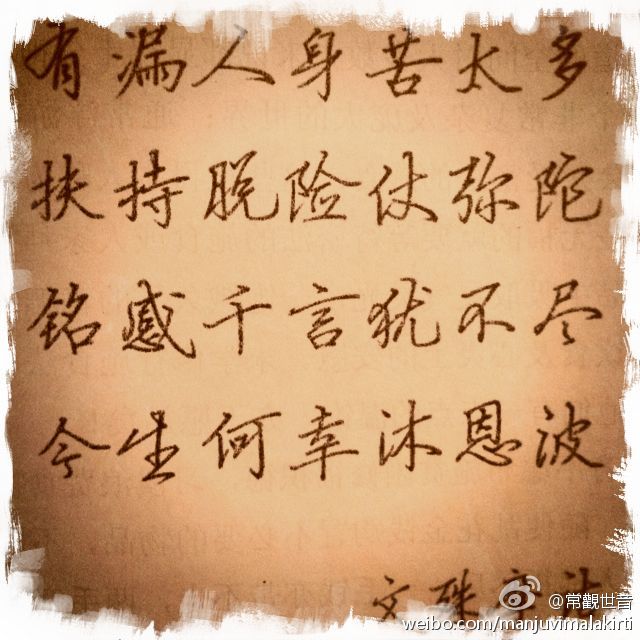 有漏人身苦太多
扶持脱险仗弥陀
铭感千言犹不尽
今生何幸沐恩波
文殊
@常觀世音
weibo.com/manjuvimalakirti